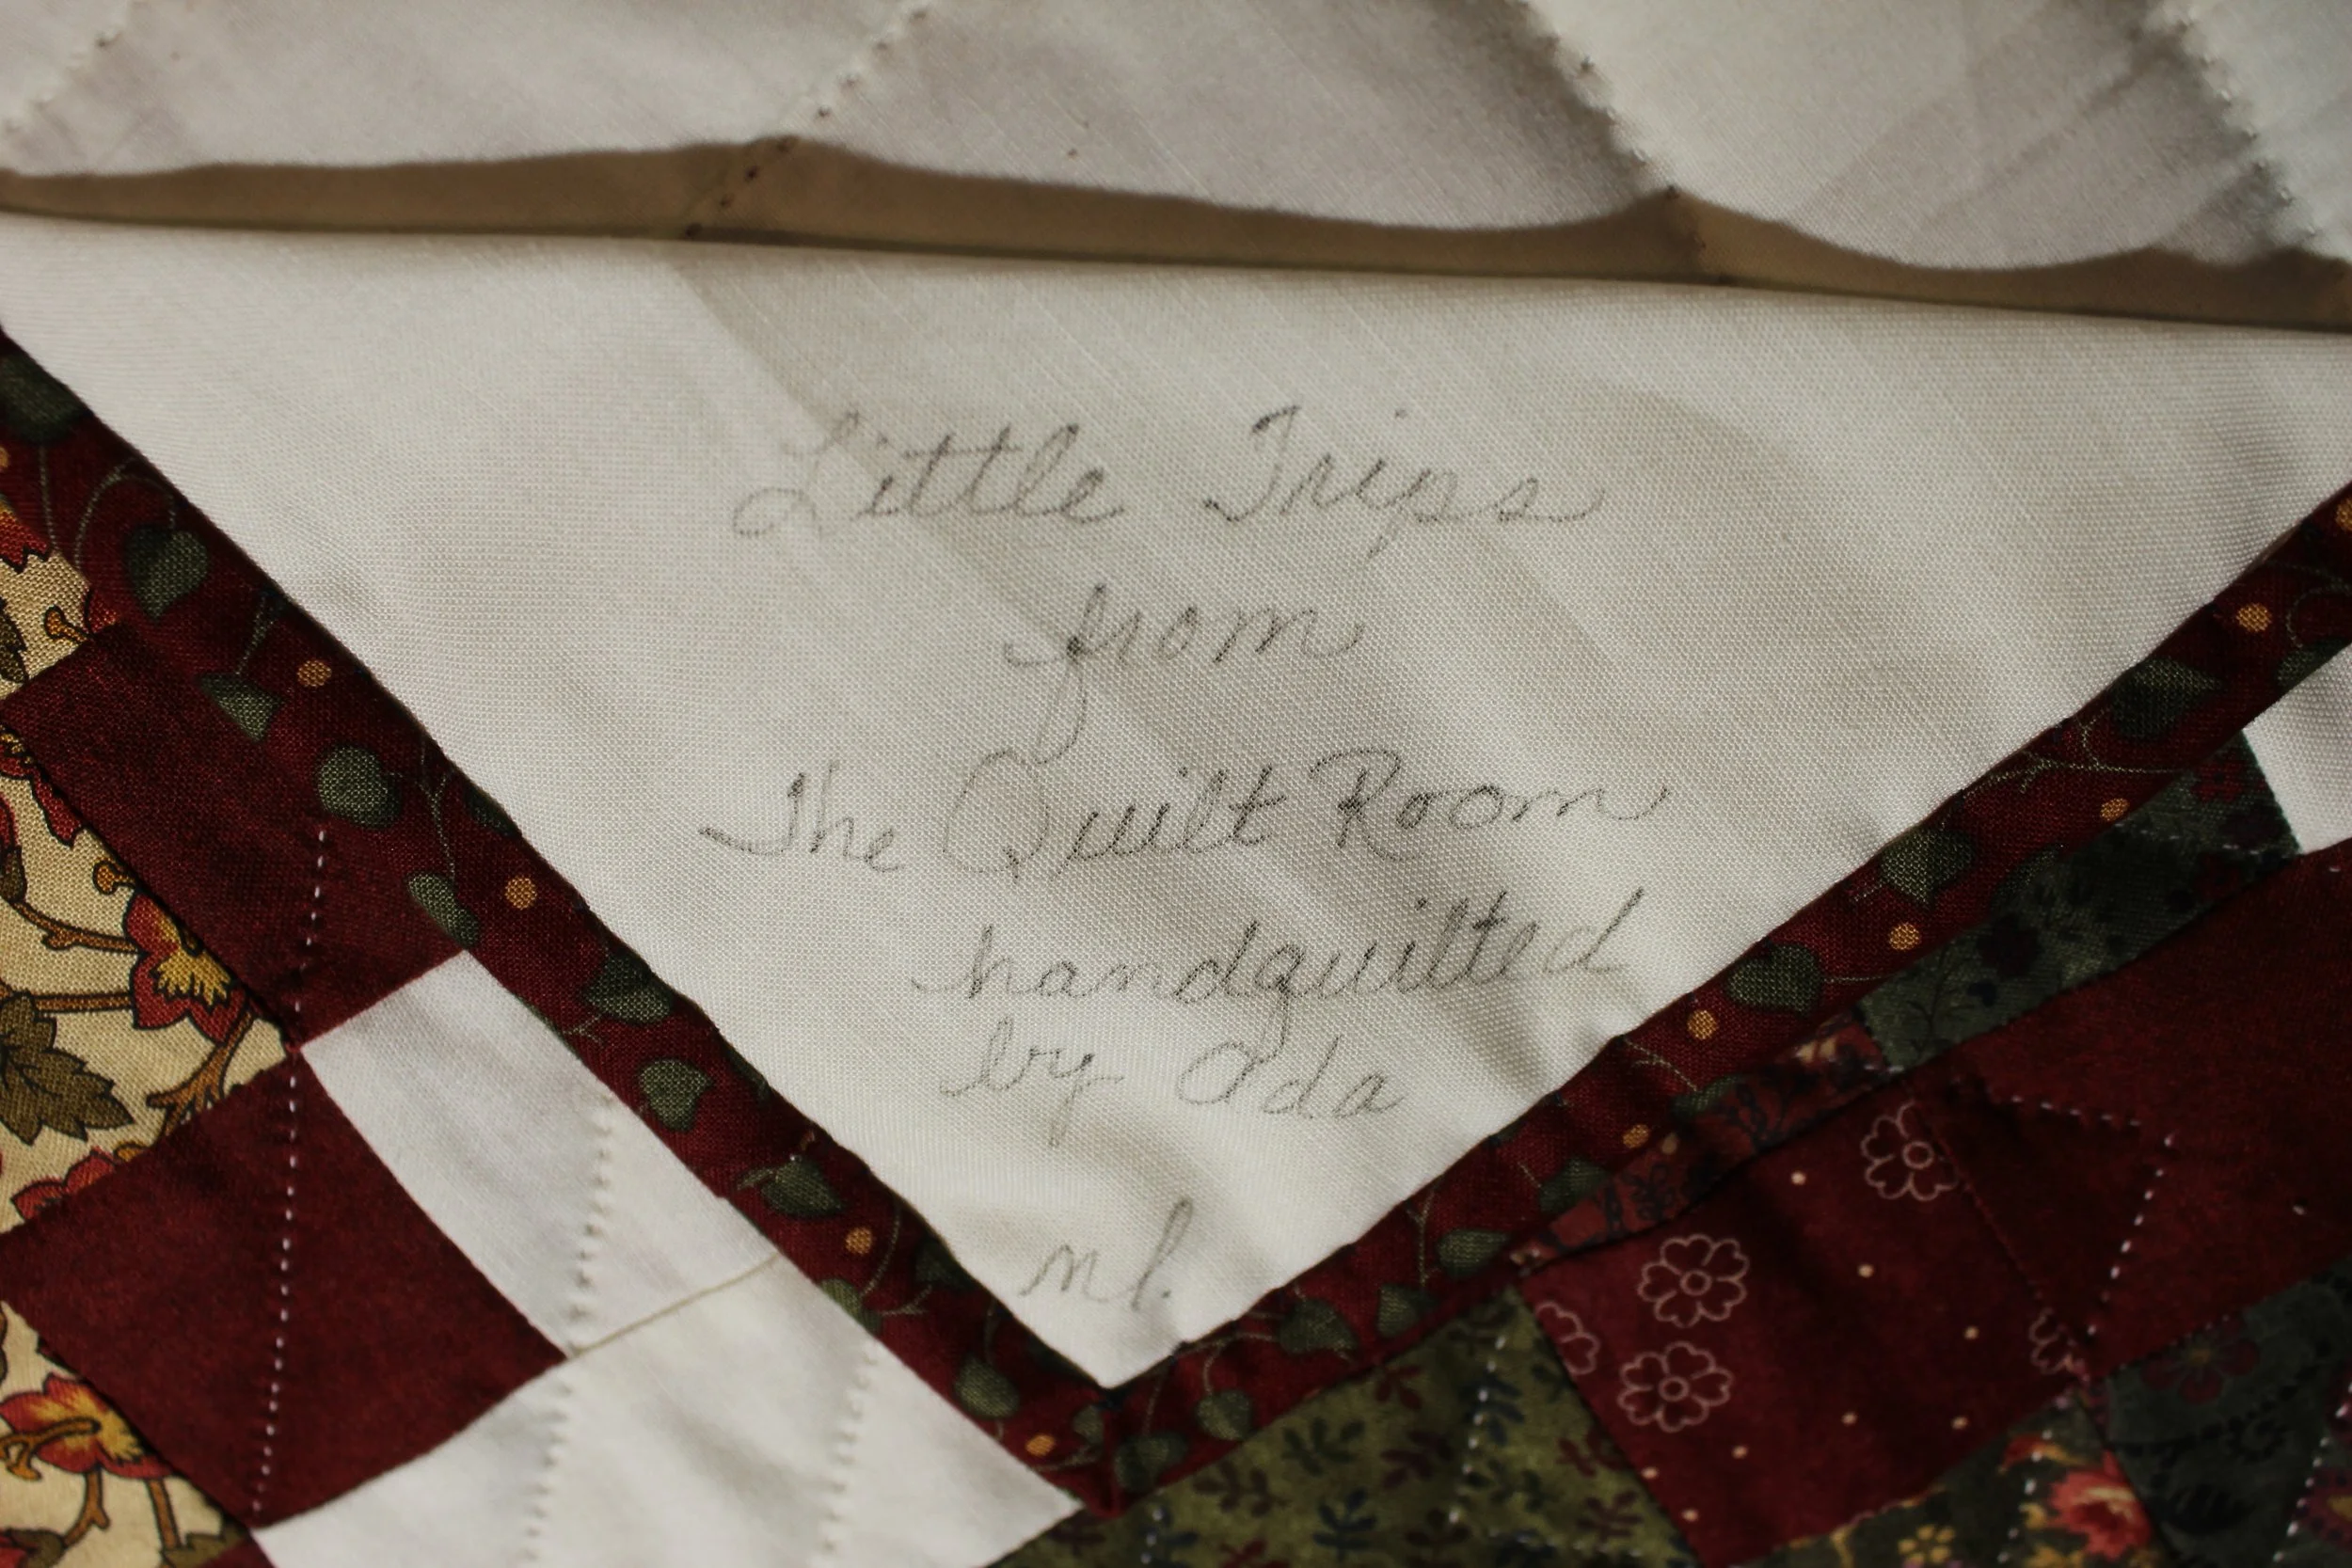 Little Trips
from
The Quilt Room
handquilted
by Ada
nl.